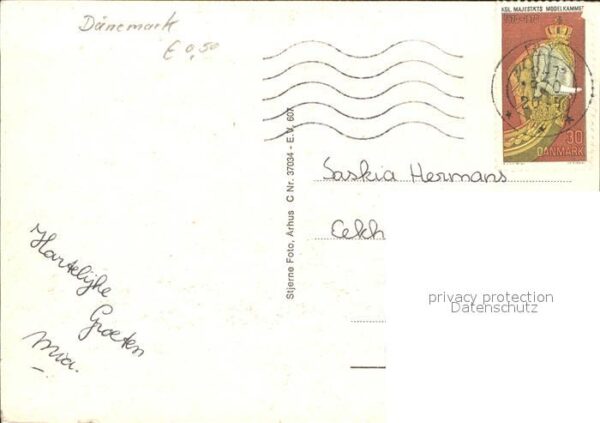 Dänemark
€ 0,50
KGL. MAJESTÆTS MODELKAMMER
1670-1970
30
DANMARK
Stjerne Foto, Århus C Nr. 37034 - E.V. 607
Saskia Hermans
Eekh
Hartelijke
Groeten
Mia.
privacy protection
Datenschutz